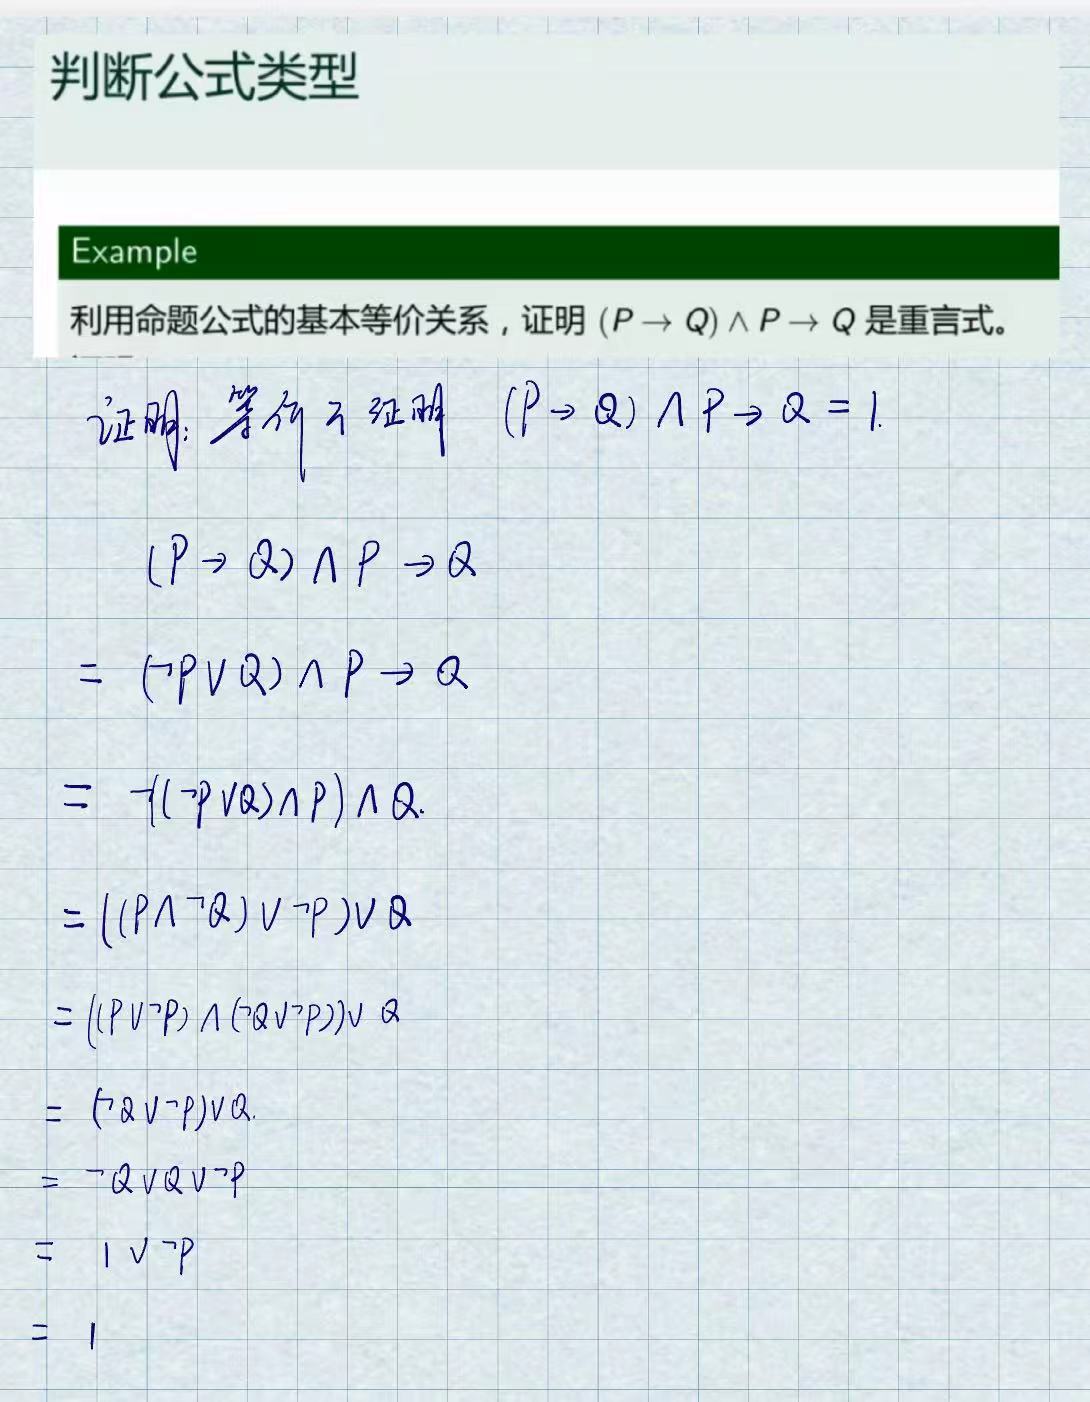 判断公式类型
Example
利用命题公式的基本等价关系，证明 (P → Q) ∧ P → Q 是重言式。
证明: 等价于证明 (P → Q) ∧ P → Q = 1.
(P → Q) ∧ P → Q
= (¬P ∨ Q) ∧ P → Q
= ¬((¬P ∨ Q) ∧ P) ∧ Q.
= ((P ∧ ¬Q) ∨ ¬P) ∨ Q
= ((P ∨ ¬P) ∧ (¬Q ∨ ¬P)) ∨ Q
= (¬Q ∨ ¬P) ∨ Q.
= ¬Q ∨ Q ∨ ¬P
= 1 ∨ ¬P
= 1